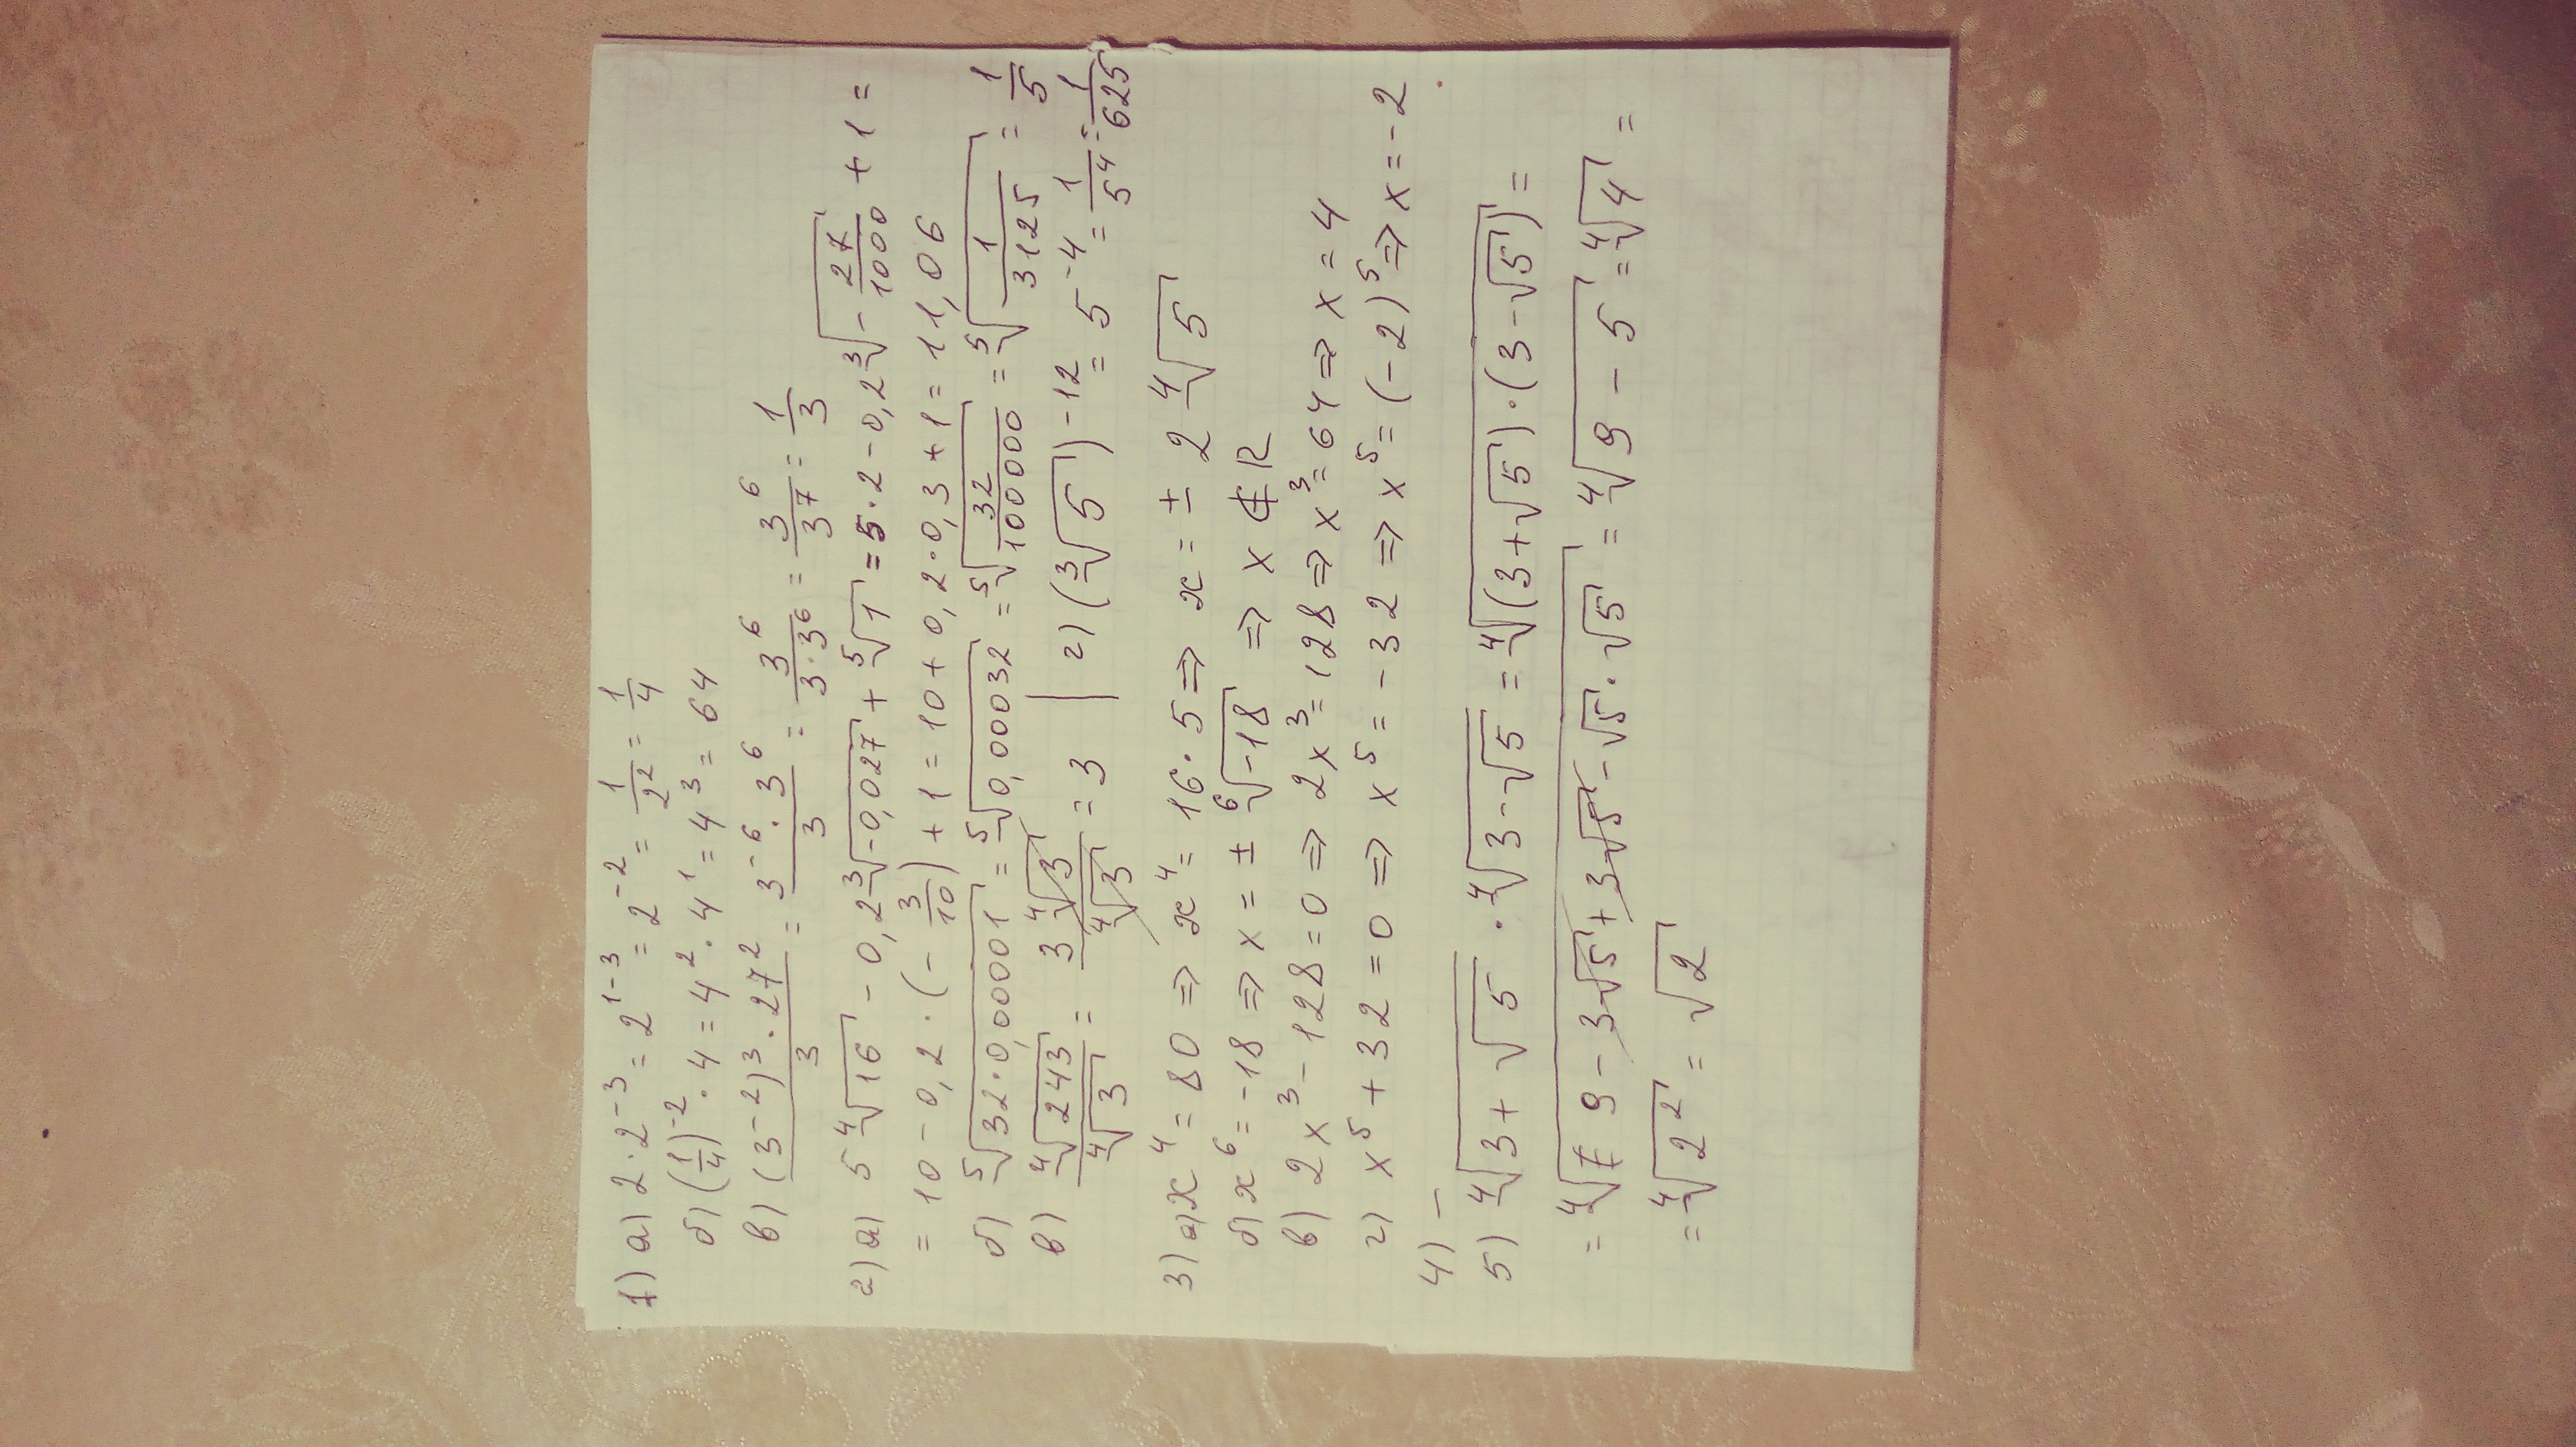 1) а) 2·2⁻³ = 2¹⁻³ = 2⁻² = 1/2² = 1/4
б) (1/4)⁻² · 4 = 4² · 4¹ = 4³ = 64
в) (3⁻²)³ · 27²/3 = 3⁻⁶ · 3⁶/3 = 3⁶/3·3⁶ = 3⁶/3⁷ = 1/3
2) а) 5 ⁴√16 - 0,2 ³√-0,027 + ⁵√1 = 5·2 - 0,2 ³√-27/1000 + 1 =
= 10 - 0,2 · (-3/10) + 1 = 10 + 0,2·0,3 + 1 = 11,06
б) ⁵√32·0,00001 = ⁵√0,00032 = ⁵√32/100000 = ⁵√1/3125 = 1/5
в) ⁴√243/⁴√3 = 3 ⁴√3/⁴√3 = 3 | г) (³√5)⁻¹² = 5⁻⁴ = 1/5⁴ = 1/625
3) а) x⁴ = 80 => x⁴ = 16·5 => x = ± 2 ⁴√5
б) x⁶ = -18 => x = ± ⁶√-18 => x ∉ R
в) 2x³ - 128 = 0 => 2x³ = 128 => x³ = 64 => x = 4
г) x⁵ + 32 = 0 => x⁵ = -32 => x⁵ = (-2)⁵ => x = -2
4) –
5) ⁴√3+√5 · ⁴√3-√5 = ⁴√(3+√5)·(3-√5) =
= ⁴√9 - 3√5 + 3√5 - √5·√5 = ⁴√9 - 5 = ⁴√4 =
= ⁴√2² = √2